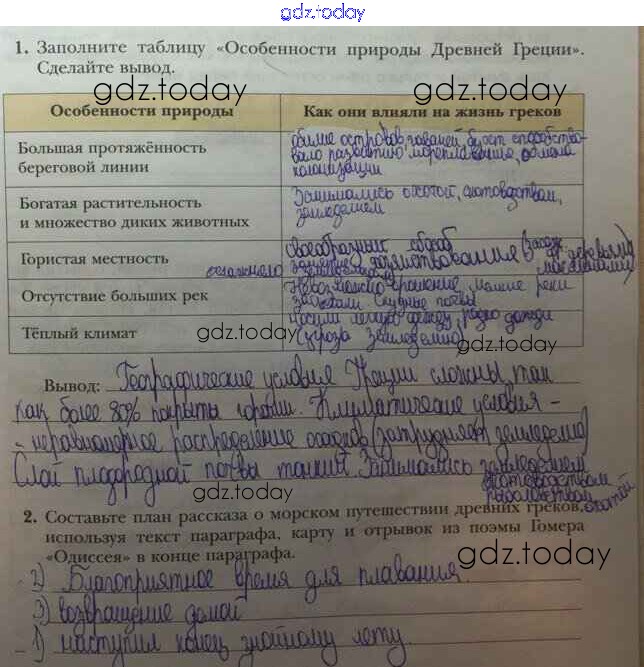 gdz.today
1. Заполните таблицу «Особенности природы Древней Греции».
Сделайте вывод.
gdz.today
gdz.today
Особенности природы
Как они влияли на жизнь греков
Большая протяжённость
береговой линии
обилие островов гаваней будет способство-
вало развитию мореплавание, обмена
колонизации
Богатая растительность
и множество диких животных
Занимались охотой, скотоводством,
земледелием
Гористая местность
своеобразный способ
хозяйствования
осложнено земледелием
Отсутствие больших рек
Невозможно орошение, мелкие реки
Скудные почвы
Тёплый климат
носили легкую одежду, редко дожди
(угроза земледелию)
gdz.today
gdz.today
Вывод: Географические условия Греции сложны, так
как более 80% покрыты горами. Климатические условия -
- неравномерное распределение осадков (затрудняет земледелие)
Слой плодородной почвы тонкий. Занимались земледелием
скотоводством
рыболовством охотой
gdz.today
2. Составьте план рассказа о морском путешествии древних греков,
используя текст параграфа, карту и отрывок из поэмы Гомера
«Одиссея» в конце параграфа.
gdz.today
2) Благоприятное время для плавания.
3) возвращение домой
1) наступил конец знойному лету.
gdz.today